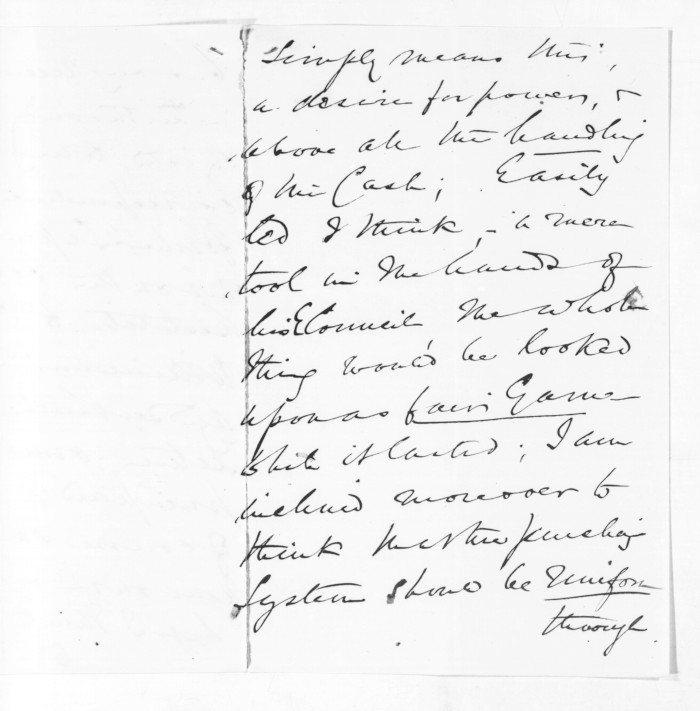 Simply means this,
a desire for power, &
above all the handling
of the Cash; Easily
led I think, - a mere
tool in the hands of
his Council the whole
thing would be looked
upon as fair Game
while it lasted; I am
inclined moreover to
think that the
System should be Uniform
through